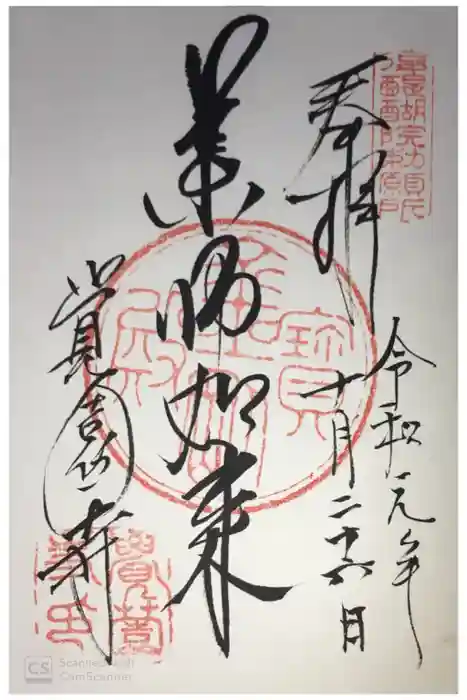 奉拝
令和元年
十月二十六日
薬師如来
覺園寺
CS Scanned with
CamScanner